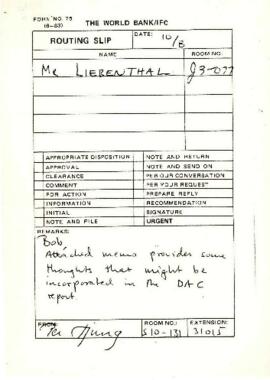 FORM NO. 75
(6-83)
THE WORLD BANK/IFC
ROUTING SLIP
DATE: 10/8
NAME
ROOM NO.
Mr LIEBENTHAL
APPROPRIATE DISPOSITION
NOTE AND RETURN
APPROVAL
NOTE AND SEND ON
CLEARANCE
PER OUR CONVERSATION
COMMENT
PER YOUR REQUEST
FOR ACTION
PREPARE REPLY
INFORMATION
RECOMMENDATION
INITIAL
SIGNATURE
NOTE AND FILE
URGENT
REMARKS:
Bob,
Attached memo provides some
thoughts that might be
incorporated in the DAC
report
FROM:
ROOM NO.:
EXTENSION:
31015